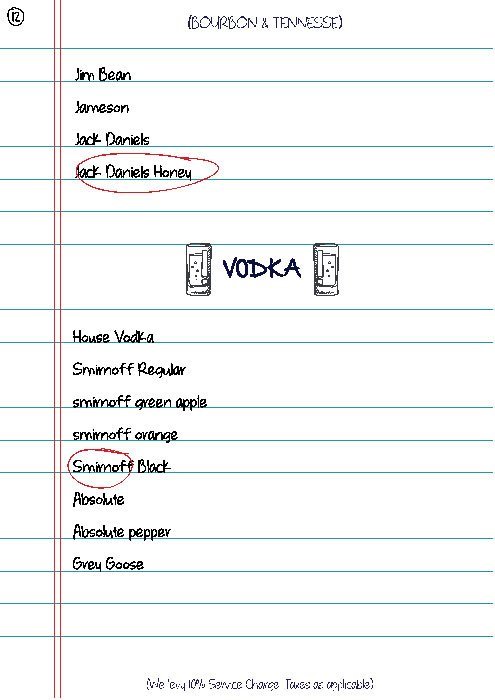 12
(BOURBON & TENNESSE)
Jim Bean
Jameson
Jack Daniels
Jack Daniels Honey
VODKA
House Vodka
Smirnoff Regular
smirnoff green apple
smirnoff orange
Smirnoff Black
Absolute
Absolute pepper
Grey Goose
(We levy 10% Service Charge. Taxes as applicable)